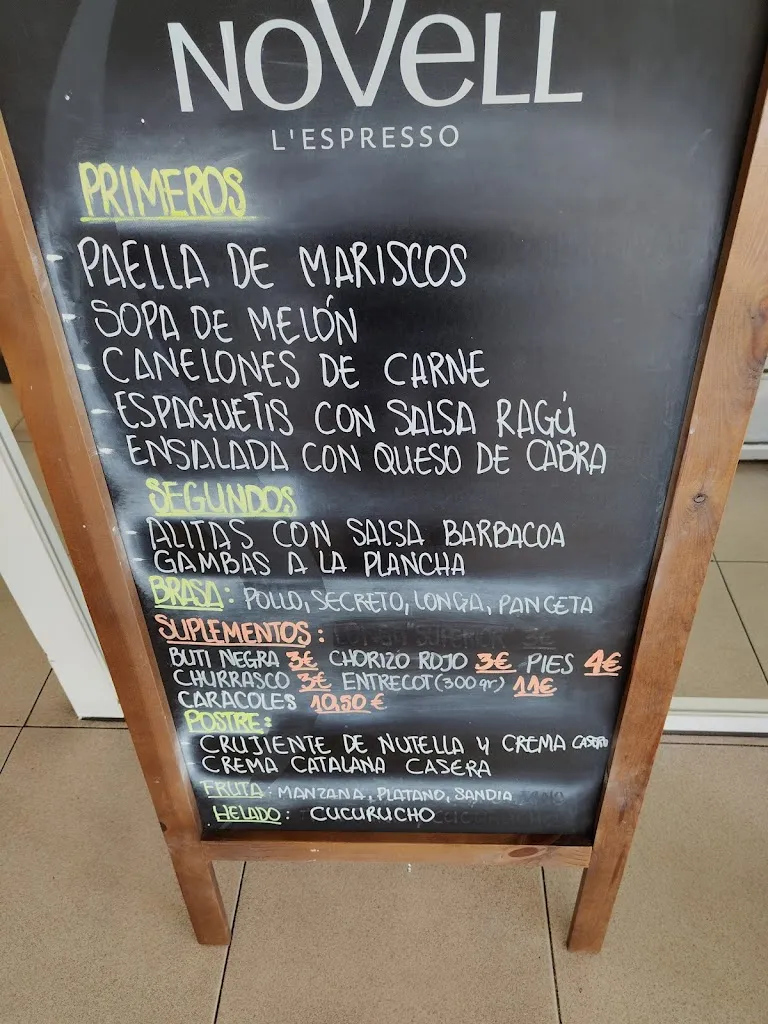 NOVELL
L'ESPRESSO
PRIMEROS
- PAELLA DE MARISCOS
- SOPA DE MELÓN
- CANELONES DE CARNE
- ESPAGUETIS CON SALSA RAGÚ
- ENSALADA CON QUESO DE CABRA
SEGUNDOS
- ALITAS CON SALSA BARBACOA
- GAMBAS A LA PLANCHA
BRASA: POLLO, SECRETO, LONGA, PANCETA
SUPLEMENTOS:
BUTI NEGRA 3€ CHORIZO ROJO 3€ PIES 4€
CHURRASCO 3€ ENTRECOT (300gr) 11€
CARACOLES 10,50 €
POSTRE:
- CRUJIENTE DE NUTELLA Y CREMA CASERO
- CREMA CATALANA CASERA
FRUTA: MANZANA, PLATANO, SANDIA
HELADO: CUCURUCHO